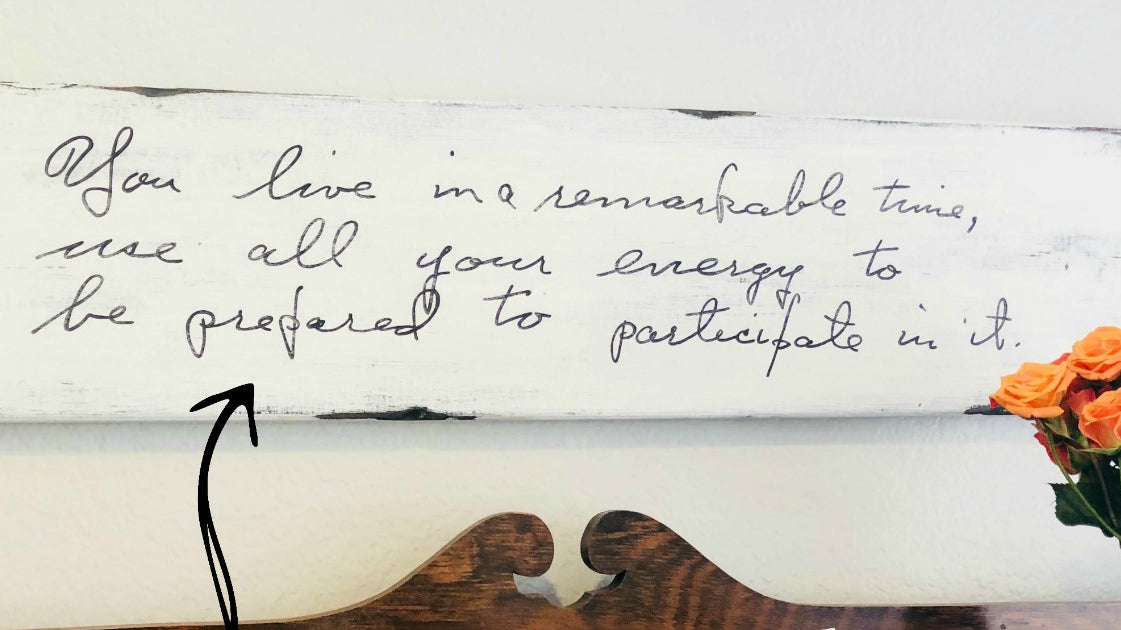 You live in a remarkable time,
use all your energy to
be prepared to participate in it.